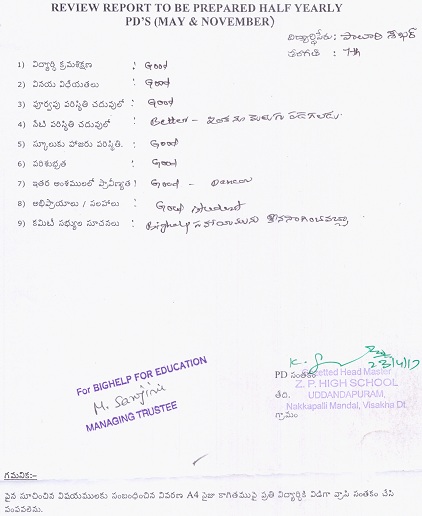 REVIEW REPORT TO BE PREPARED HALF YEARLY
PD'S (MAY & NOVEMBER)
విద్యార్థిపేరు:
తరగతి : 7th
1) విద్యార్థి క్రమశిక్షణ : Good
2) వినయ విధేయతలు : Good
3) పూర్వపు పరిస్థితి చదువులో : Good
4) నేటి పరిస్థితి చదువులో : Better -
5) స్కూలుకు హాజరు పరిస్థితి. : Good
6) పరిశుభ్రత : Good
7) ఇతర అంశములలో ప్రావీణ్యత : Good - Dancer
8) అభిప్రాయాలు / సలహాలు : Good student
9) కమిటీ సభ్యుల సూచనలు : Bighelp
For BIGHELP FOR EDUCATION
M. Sanjini
MANAGING TRUSTEE
23/4/17
PD సంతకం Gazetted Head Master
Z. P. HIGH SCHOOL
తేది. UDDANDAPURAM,
Nakkapalli Mandal, Visakha Dt.
గ్రామం
గమనిక:-
పైన సూచించిన విషయములకు సంబంధించిన వివరణ A4 సైజు కాగితముపై ప్రతి విద్యార్థికి విడిగా వ్రాసి సంతకం చేసి
పంపవలెను.